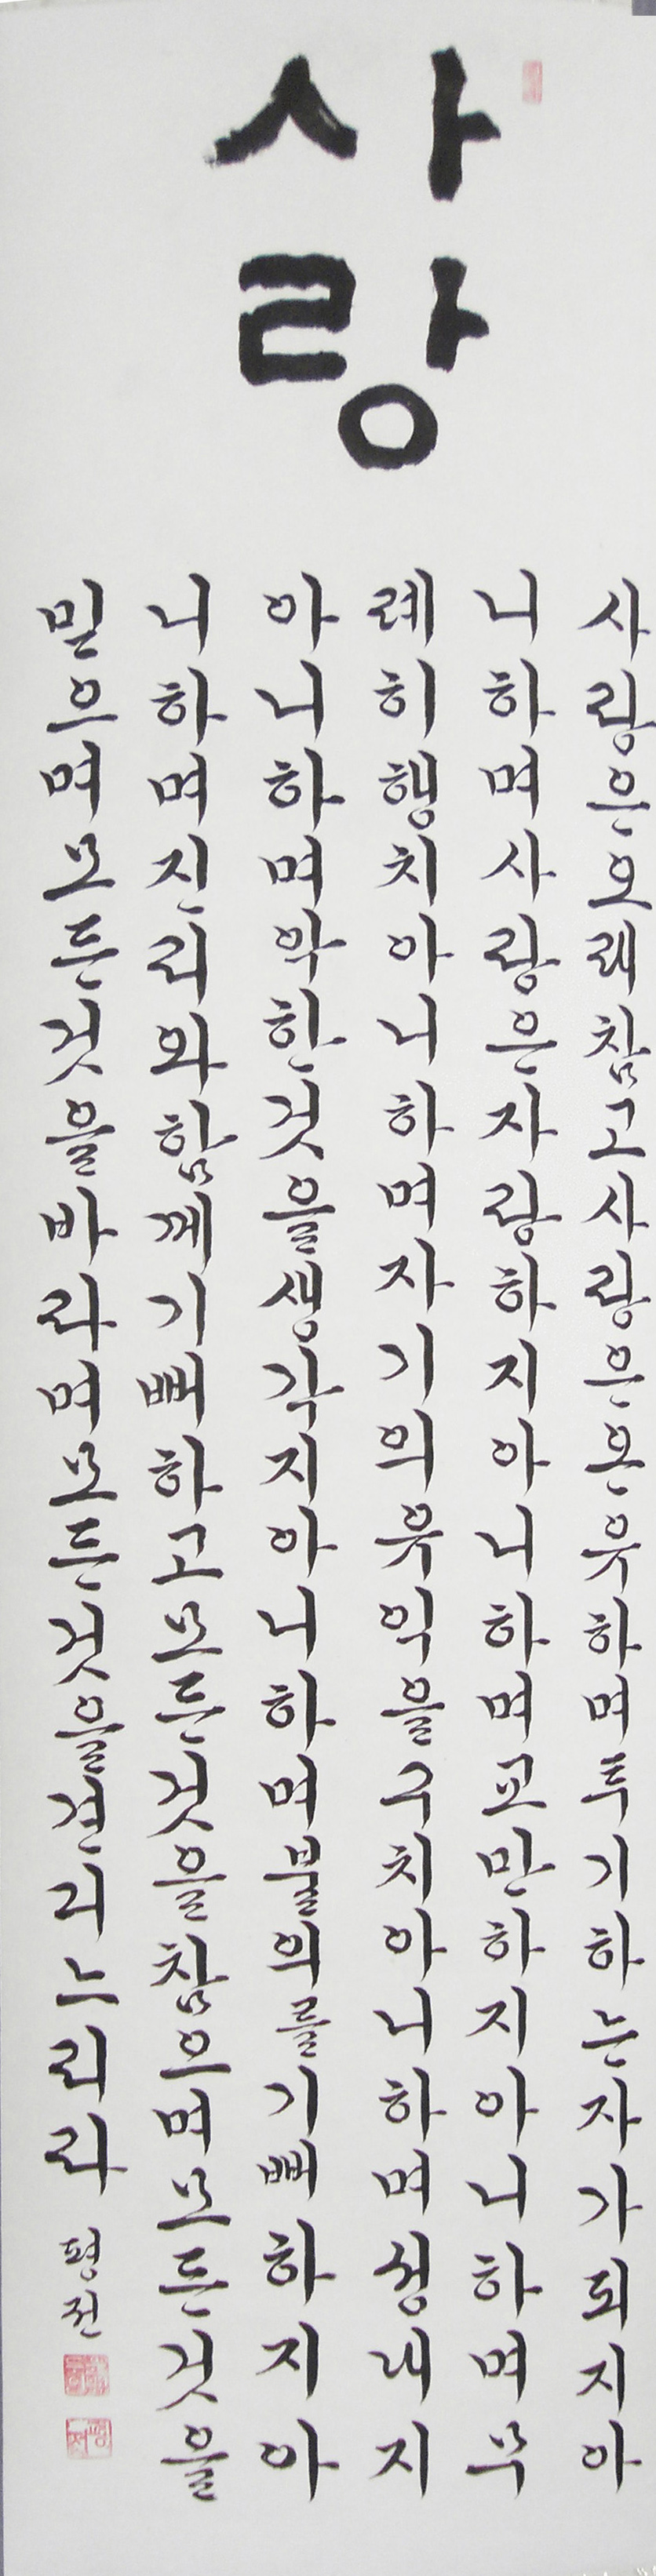 사
랑
사랑은오래참고사랑은온유하며투기하는자가되지아
니하며사랑은자랑하지아니하며교만하지아니하며무
례히행치아니하며자기의유익을구치아니하며성내지
아니하며악한것을생각지아니하며불의를기뻐하지아
니하며진리와함께기뻐하고모든것을참으며모든것을
믿으며모든것을바라며모든것을견디느리라 평전